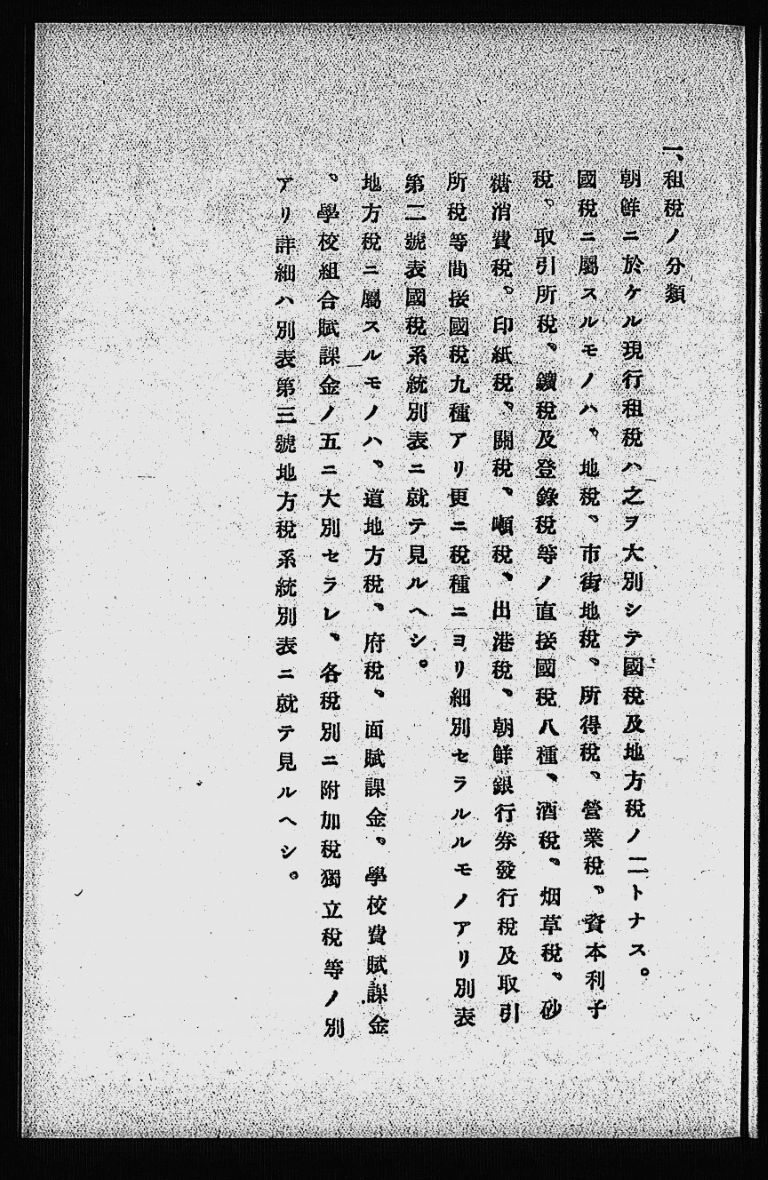 一、租稅ノ分類
朝鮮ニ於ケル現行租稅ハ之ヲ大別シテ國稅及地方稅ノ二トナス。
國稅ニ屬スルモノハ、地稅、市街地稅、所得稅、營業稅、資本利子
稅、取引所稅、鑛稅及登錄稅等ノ直接國稅八種、酒稅、烟草稅、砂
糖消費稅、印紙稅、關稅、噸稅、出港稅、朝鮮銀行券發行稅及取引
所稅等間接國稅九種アリ更ニ稅種ニヨリ細別セラルルモノアリ別表
第二號表國稅系統別表ニ就テ見ルヘシ。
地方稅ニ屬スルモノハ、道地方稅、府稅、面賦課金、學校費賦課金
、學校組合賦課金ノ五ニ大別セラレ、各稅別ニ附加稅獨立稅等ノ別
アリ詳細ハ別表第三號地方稅系統別表ニ就テ見ルヘシ。